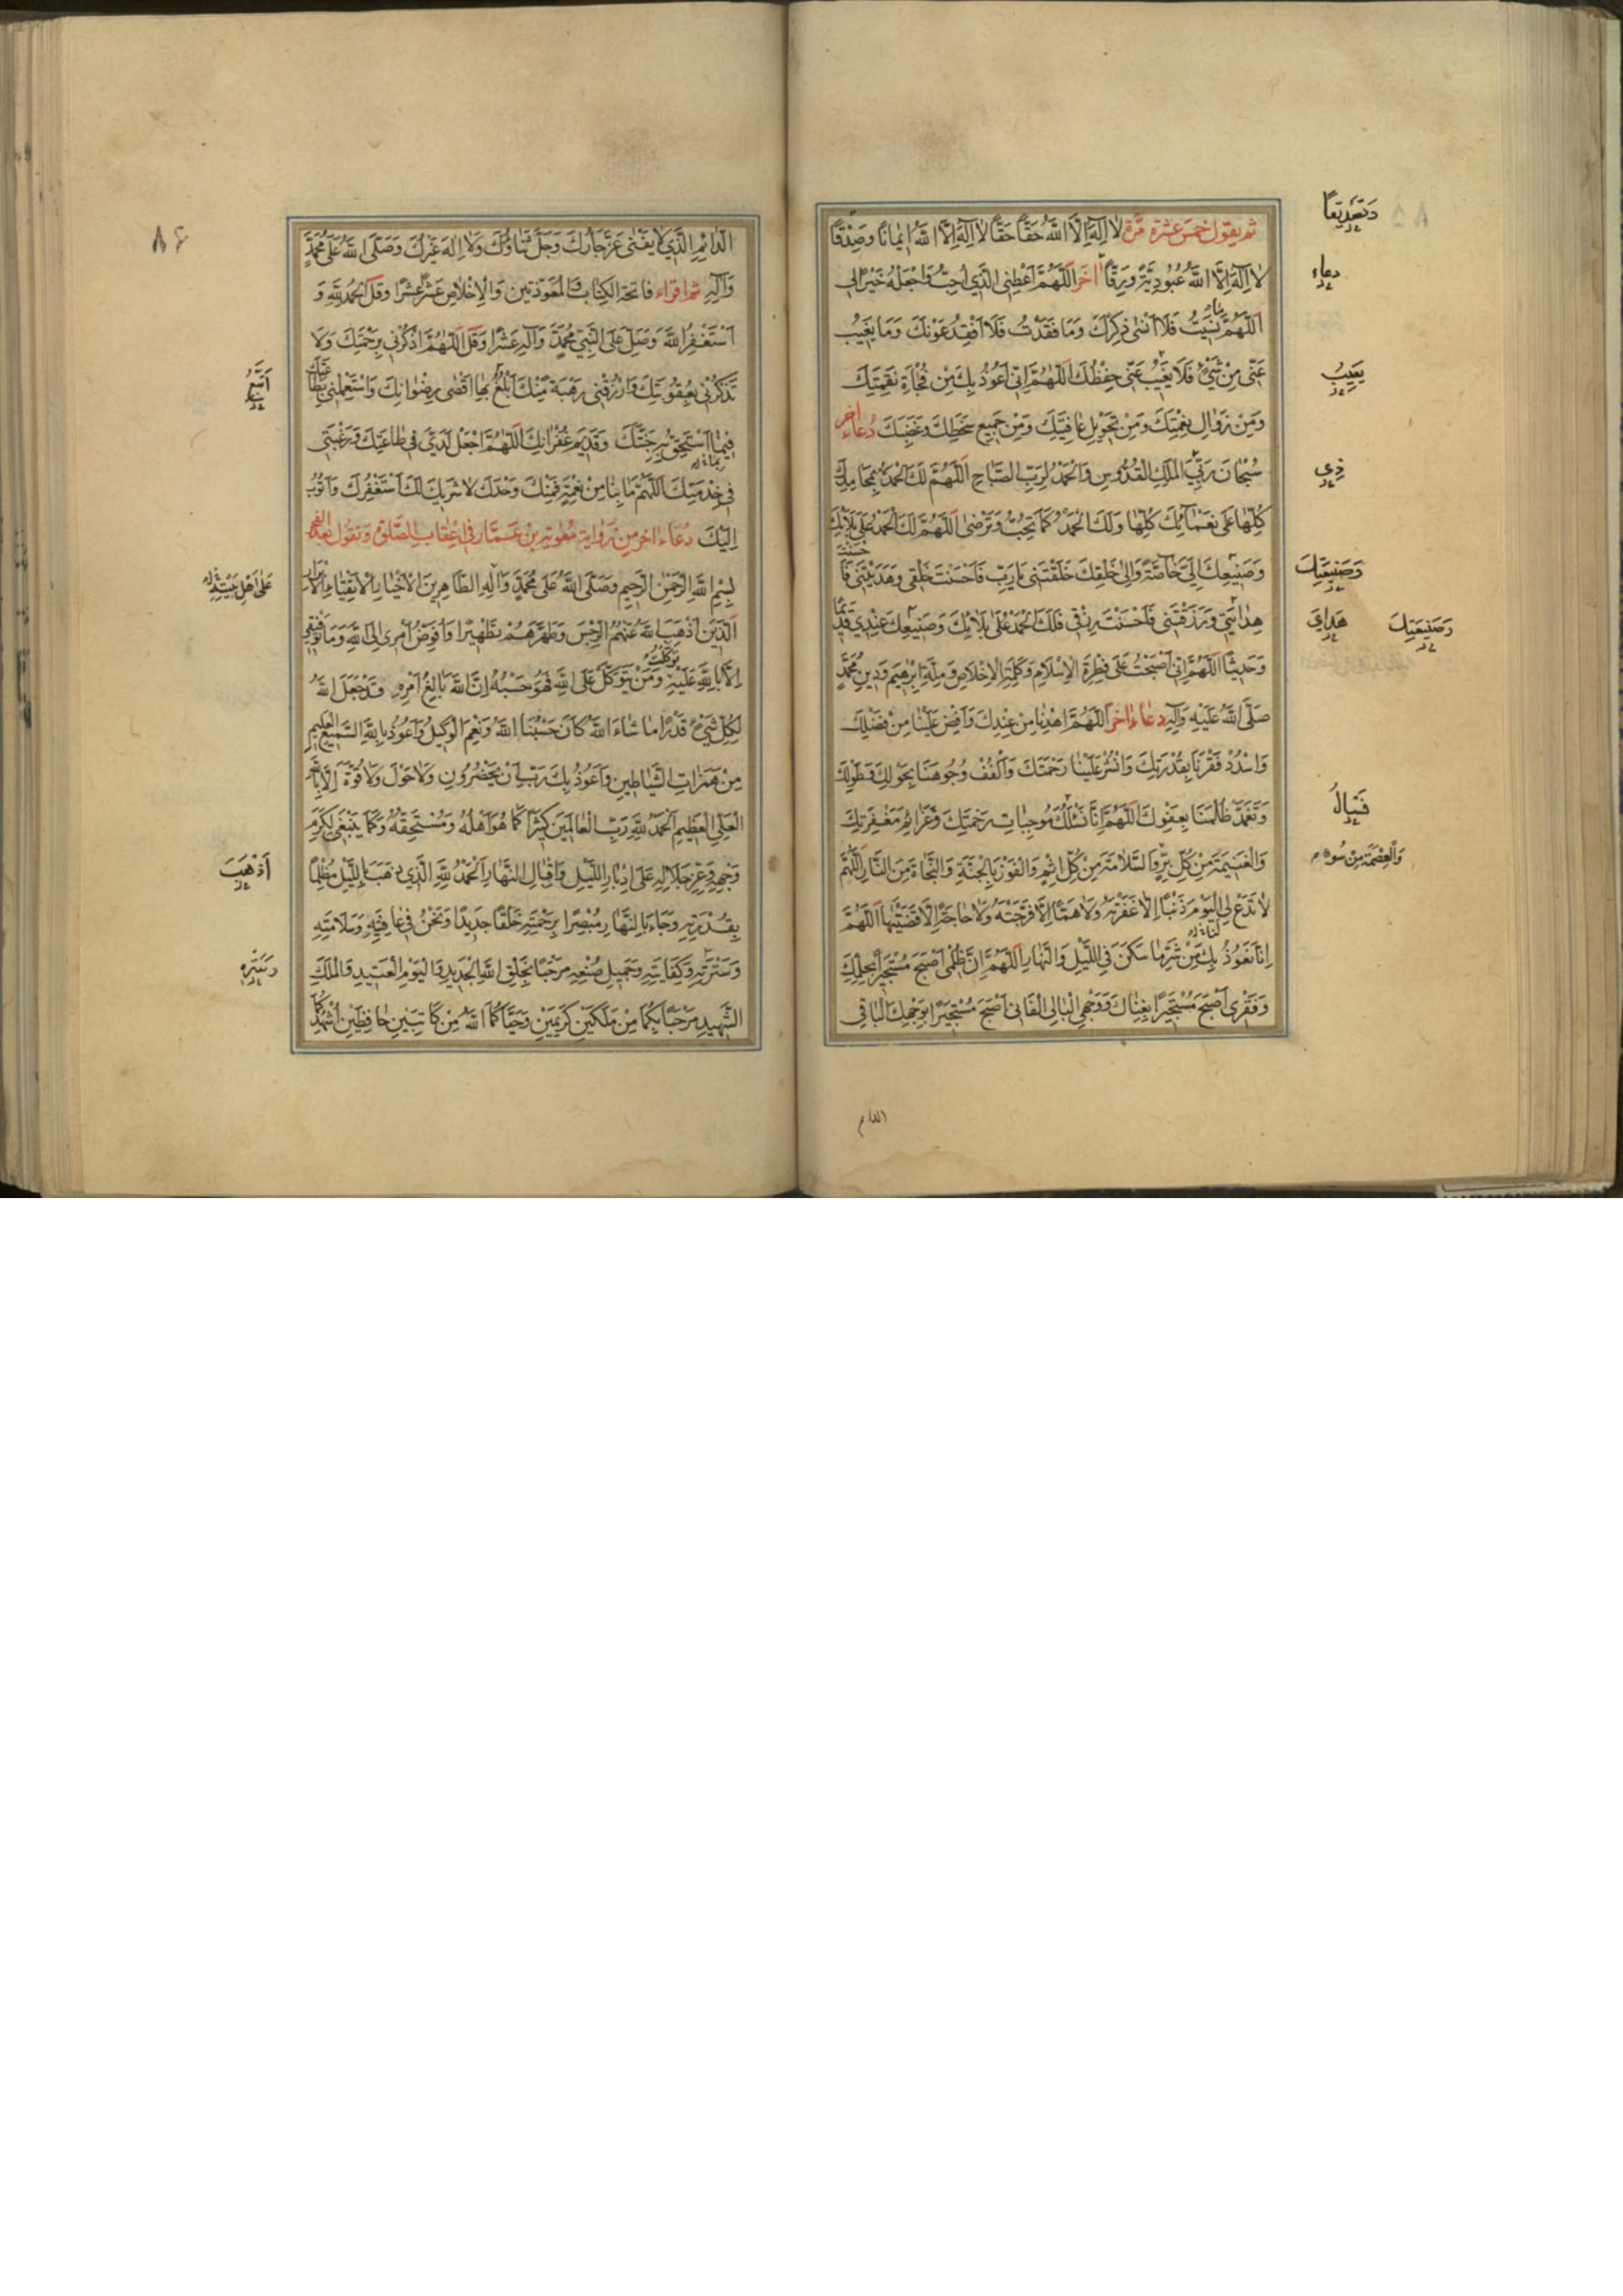 ثم يقول خمس عشرة مرّة لا اِلٰهَ اِلَّا اللهُ حَقًّا حَقًّا لا اِلٰهَ اِلَّا اللهُ اِيمانًا وَصِدْقًا
وَتَصْدِيقًا
لا اِلٰهَ اِلَّا اللهُ عُبُودِيَّةً وَرِقًّا اخَر اَللّٰهُمَّ اَعْطِنِى الَّذِي اُحِبُّ وَاجْعَلْهُ خَيْرًا لِى
دعاء
اَللّٰهُمَّ مٰا نَسِيتُ فَلا اَنْسٰى ذِكْرَكَ وَمٰا فَقَدْتُ فَلا اَفْقِدُ عَوْنَكَ وَمٰا يَغِيبُ
عَنِّى مِنْ شَيْءٍ فَلا يَغِيبُ عَنِّى حِفْظُكَ اَللّٰهُمَّ اِنِّى اَعُوذُ بِكَ مِنْ فُجْاَةِ نَقِمَتِكَ
يَغِيبُ
وَمِنْ زَوٰالِ نِعْمَتِكَ وَمِنْ تَحْوِيلِ عٰافِيَتِكَ وَمِنْ جَمِيعِ سَخَطِكَ وَغَضَبِكَ دُعٰاء اخر
سُبْحٰانَ رَبِّى المَلِكِ القُدُّوسِ وَالحَمْدُ لِرَبِّ الصَّبٰاحِ اَللّٰهُمَّ لَكَ الحَمْدُ بِمَحٰامِدِكَ
ذِى
كُلِّهٰا عَلٰى نَعْمٰائِكَ كُلِّهٰا وَلَكَ الحَمْدُ كَمٰا تُحِبُّ وَتَرْضٰى اَللّٰهُمَّ لَكَ الحَمْدُ عَلٰى بَلائِكَ
وَصَنِيعِكَ اِلَىَّ خٰاصَّةً وَاِلٰى خَلْقِكَ خَلَقْتَنِى يٰا رَبِّ فَاَحْسَنْتَ خَلْقِى وَهَدَيْتَنِى فَاَحْسَنْتَ
وَصَنِيعَتِكَ
هِدٰايَتِى وَرَزَقْتَنِى فَاَحْسَنْتَ رِزْقِى فَلَكَ الحَمْدُ عَلٰى بَلائِكَ وَصَنِيعِكَ عِنْدِى قَدِيمًا
هُدٰايَ
وَصَنِيعَتِكَ
وَحَدِيثًا اَللّٰهُمَّ اِنِّى اَصْبَحْتُ عَلٰى فِطْرَةِ الاِسْلامِ وَكَلِمَةِ الاِخْلاصِ وَمِلَّةِ اِبْرٰهِيمَ وَدِينِ مُحَمَّدٍ
صَلَّى اللهُ عَلَيْهِ وَآلِهِ دعاء اخر اَللّٰهُمَّ اهْدِنٰا مِنْ عِنْدِكَ وَاَفِضْ عَلَيْنٰا مِنْ فَضْلِكَ
وَاسْدُدْ فَقْرَنٰا بِقُدْرَتِكَ وَانْشُرْ عَلَيْنٰا رَحْمَتَكَ وَاكْفُفْ وُجُوهَنٰا بِحَوْلِكَ وَطَوْلِكَ
وَتَغَمَّدْ ظُلْمَنٰا بِعَفْوِكَ اَللّٰهُمَّ اِنّٰا نَسْئَلُكَ مُوجِبٰاتِ رَحْمَتِكَ وَعَزٰائِمَ مَغْفِرَتِكَ
وَالْغَنِيمَةَ مِنْ كُلِّ بِرٍّ وَالسَّلامَةَ مِنْ كُلِّ اِثْمٍ وَالْفَوْزَ بِالْجَنَّةِ وَالنَّجٰاةَ مِنَ النّٰارِ اَللّٰهُمَّ
وَالْعِصْمَةَ مِنْ سُوءٍ
لا تَدَعْ لِى اليَوْمَ ذَنْبًا اِلّا غَفَرْتَهُ وَلا هَمًّا اِلّا فَرَّجْتَهُ وَلا حٰاجَةً اِلّا قَضَيْتَهٰا اَللّٰهُمَّ
اِنّٰا نَعُوذُ بِكَ مِنْ شَرِّ مٰا سَكَنَ فِى اللَّيْلِ وَالنَّهٰارِ اَللّٰهُمَّ اِنَّ ظُلْمِى اَصْبَحَ مُسْتَجِيرًا بِحِلْمِكَ
وَفَقْرِى اَصْبَحَ مُسْتَجِيرًا بِغِنٰاكَ وَوَجْهِى البٰالِى الفٰانِى اَصْبَحَ مُسْتَجِيرًا بِوَجْهِكَ البٰاقِى
الدائم
۸۶
الدّٰائِمِ الَّذِي لا يَفْنٰى عَزَّ جٰارُكَ وَجَلَّ ثَنٰاؤُكَ وَلا اِلٰهَ غَيْرُكَ وَصَلَّى اللهُ عَلٰى مُحَمَّدٍ
وَآلِهِ ثم اقراء فاتحة الكتاب وَالمُعَوِّذَتَيْنِ وَالاِخْلاصَ عَشْرًا عَشْرًا وَقُلْ الحَمْدُ لِلّٰهِ وَ
اَسْتَغْفِرُ اللهَ وَصَلِّ عَلَى النَّبِيِّ مُحَمَّدٍ وَآلِهِ عَشْرًا وَقُلْ اَللّٰهُمَّ اذْكُرْنِى بِرَحْمَتِكَ وَلا
تَذْكُرْنِى بِعُقُوبَتِكَ وَارْزُقْنِى رَهْبَةً مِنْكَ اَبْلُغُ بِهٰا اَقْصٰى رِضْوٰانِكَ وَاسْتَعْمِلْنِى بِطٰاعَتِكَ
فِيمٰا اَسْتَحِقُّ بِهِ جَنَّتَكَ وَقَدِيمَ غُفْرٰانِكَ اَللّٰهُمَّ اجْعَلْ كَدِّى فِى طٰاعَتِكَ وَرَغْبَتِى
فِى خِدْمَتِكَ اَللّٰهُمَّ مٰا بِنٰا مِنْ نِعْمَةٍ فَمِنْكَ وَحْدَكَ لا شَرِيكَ لَكَ اَسْتَغْفِرُكَ وَاَتُوبُ
اِلَيْكَ دُعٰاء اخر مِن رِوٰاية مُعٰوية بن عَمّٰار فى اعقاب الصَّلٰوة وَتقول بَعد الفجر
بِسْمِ اللهِ الرَّحْمٰنِ الرَّحِيمِ وَصَلَّى اللهُ عَلٰى مُحَمَّدٍ وَآلِهِ الطّٰاهِرِينَ الاَخْيٰارِ الاَتْقِيٰاءِ الاَبْرٰارِ
الَّذِينَ اَذْهَبَ اللهُ عَنْهُمُ الرِّجْسَ وَطَهَّرَهُمْ تَطْهِيرًا وَاُفَوِّضُ اَمْرِى اِلَى اللهِ وَمٰا تَوْفِيقِى
اِلّا بِاللهِ عَلَيْهِ تَوَكَّلْتُ وَمَنْ يَتَوَكَّلْ عَلَى اللهِ فَهُوَ حَسْبُهُ اِنَّ اللهَ بٰالِغُ اَمْرِهِ قَدْ جَعَلَ اللهُ
لِكُلِّ شَيْءٍ قَدْرًا مٰا شٰاءَ اللهُ كٰانَ حَسْبُنَا اللهُ وَنِعْمَ الوَكِيلُ وَاَعُوذُ بِاللهِ السَّمِيعِ العَلِيمِ
مِنْ هَمَزٰاتِ الشَّيٰاطِينِ وَاَعُوذُ بِكَ رَبِّ اَنْ يَحْضُرُونِ وَلا حَوْلَ وَلا قُوَّةَ اِلّا بِاللهِ
العَلِيِّ العَظِيمِ اَلحَمْدُ لِلّٰهِ رَبِّ العٰالَمِينَ كَثِيرًا كَمٰا هُوَ اَهْلُهُ وَمُسْتَحِقُّهُ وَكَمٰا يَنْبَغِى لِكَرَمِ
وَجْهِهِ وَعِزِّ جَلالِهِ عَلٰى اِدْبٰارِ اللَّيْلِ وَاِقْبٰالِ النَّهٰارِ اَلحَمْدُ لِلّٰهِ الَّذِي ذَهَبَ بِاللَّيْلِ مُظْلِمًا
اَذْهَبَ
بِقُدْرَتِهِ وَجٰاءَ بِالنَّهٰارِ مُبْصِرًا بِرَحْمَتِهِ خَلْقًا جَدِيدًا وَنَحْنُ فِى عٰافِيَتِهِ وَسَلامَتِهِ
وَسَتْرِهِ وَكِفٰايَتِهِ وَجَمِيلِ صُنْعِهِ مَرْحَبًا بِخَلْقِ اللهِ الجَدِيدِ وَاليَوْمِ العَتِيدِ وَالمَلَكِ
وَسَتْرِهِ
الشَّهِيدِ مَرْحَبًا بِكُمٰا مِنْ مَلَكَيْنِ كَرِيمَيْنِ وَحَيّٰاكُمَا اللهُ مِنْ كٰاتِبَيْنِ حٰافِظَيْنِ اُشْهِدُكُمٰا